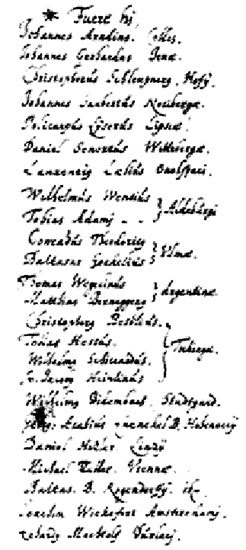 * Fuere hj
Johannes Arndius. Celles.
Johannes Gerhardus Jenæ
Christophorus Schleupnerg. Hoffg.
Johannes Saubertus Noribergæ.
Policarpus Lÿserus Lipsiæ
Daniel Sennertus Wittebergæ.
Laurentig Lælius Onolspaci.
Wilhelmus Wentius
Tobias Adamj } Aldebürgi
Conradus Theodorice
Baltasar Gockelius } Ulmæ
Thomas Wegelinus
Matthias Berneggerg } Argentinæ
Christophorg Besoldus.
Tobias Hessus.
Wilhelmg Schicardus. } Tubingæ
Jo. Jacobg Heinlinus
Wilhelmg Bidembach. Studtgard.
Zaneckel B. Hohenegg
Daniel Hitzler Linzÿ
Michael Viennæ
Baltas. B. Rogendorff.
Joachim Wickefort Amsterdamj.
Durlacj.